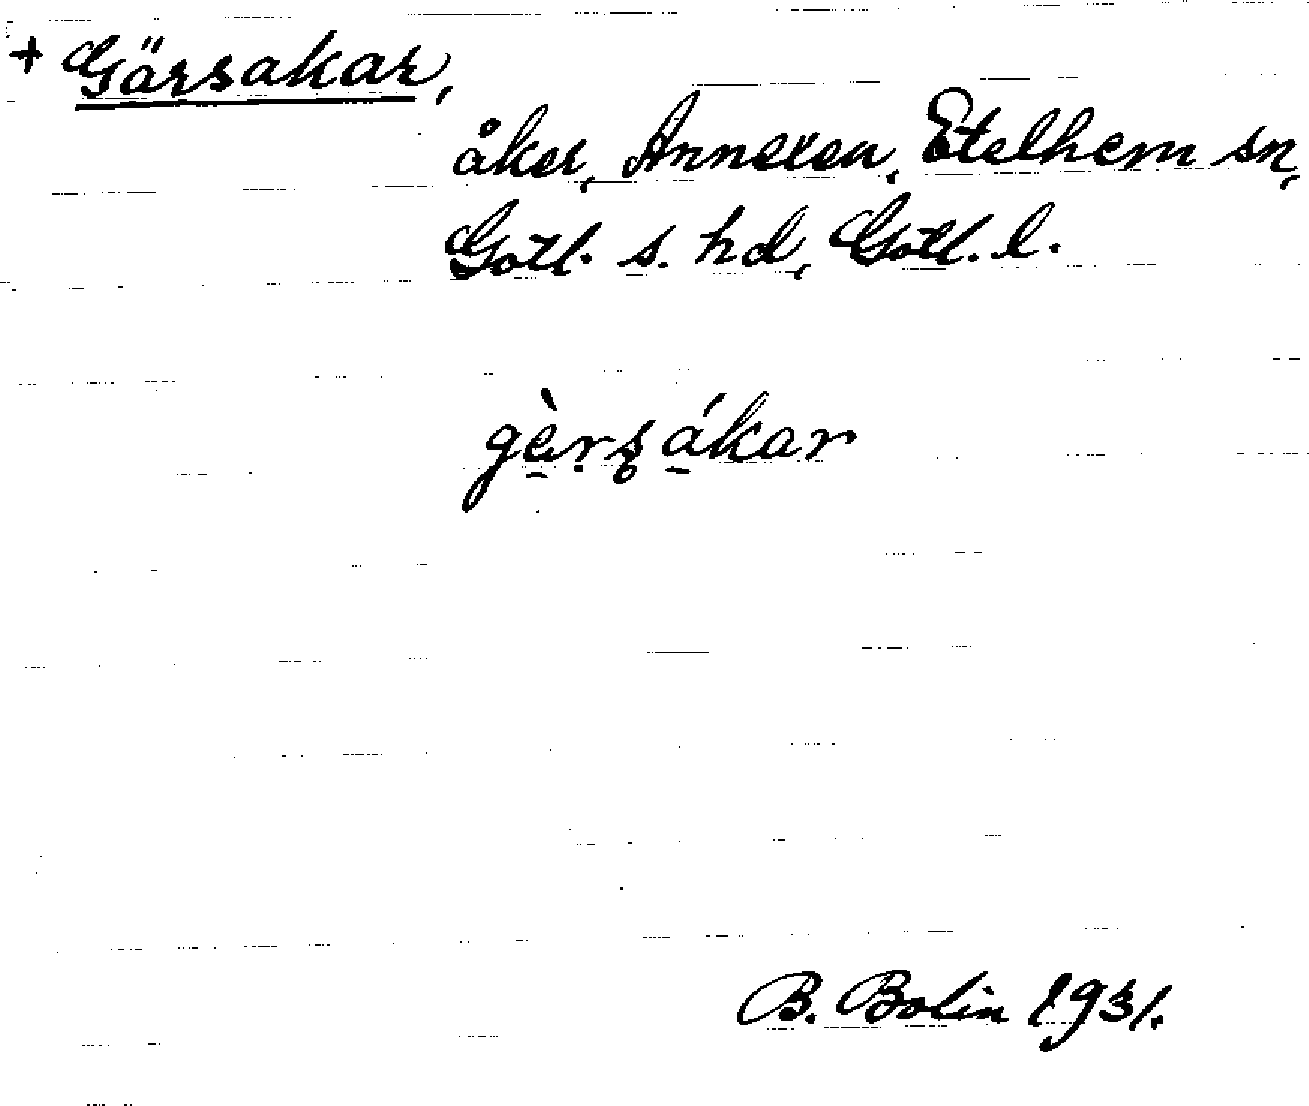 + Gärsakar,
åker, Annexen, Etelhem sn,
Gotl. s. hd, Gotl. l.
gèrsákar
B. Bolin 1931.